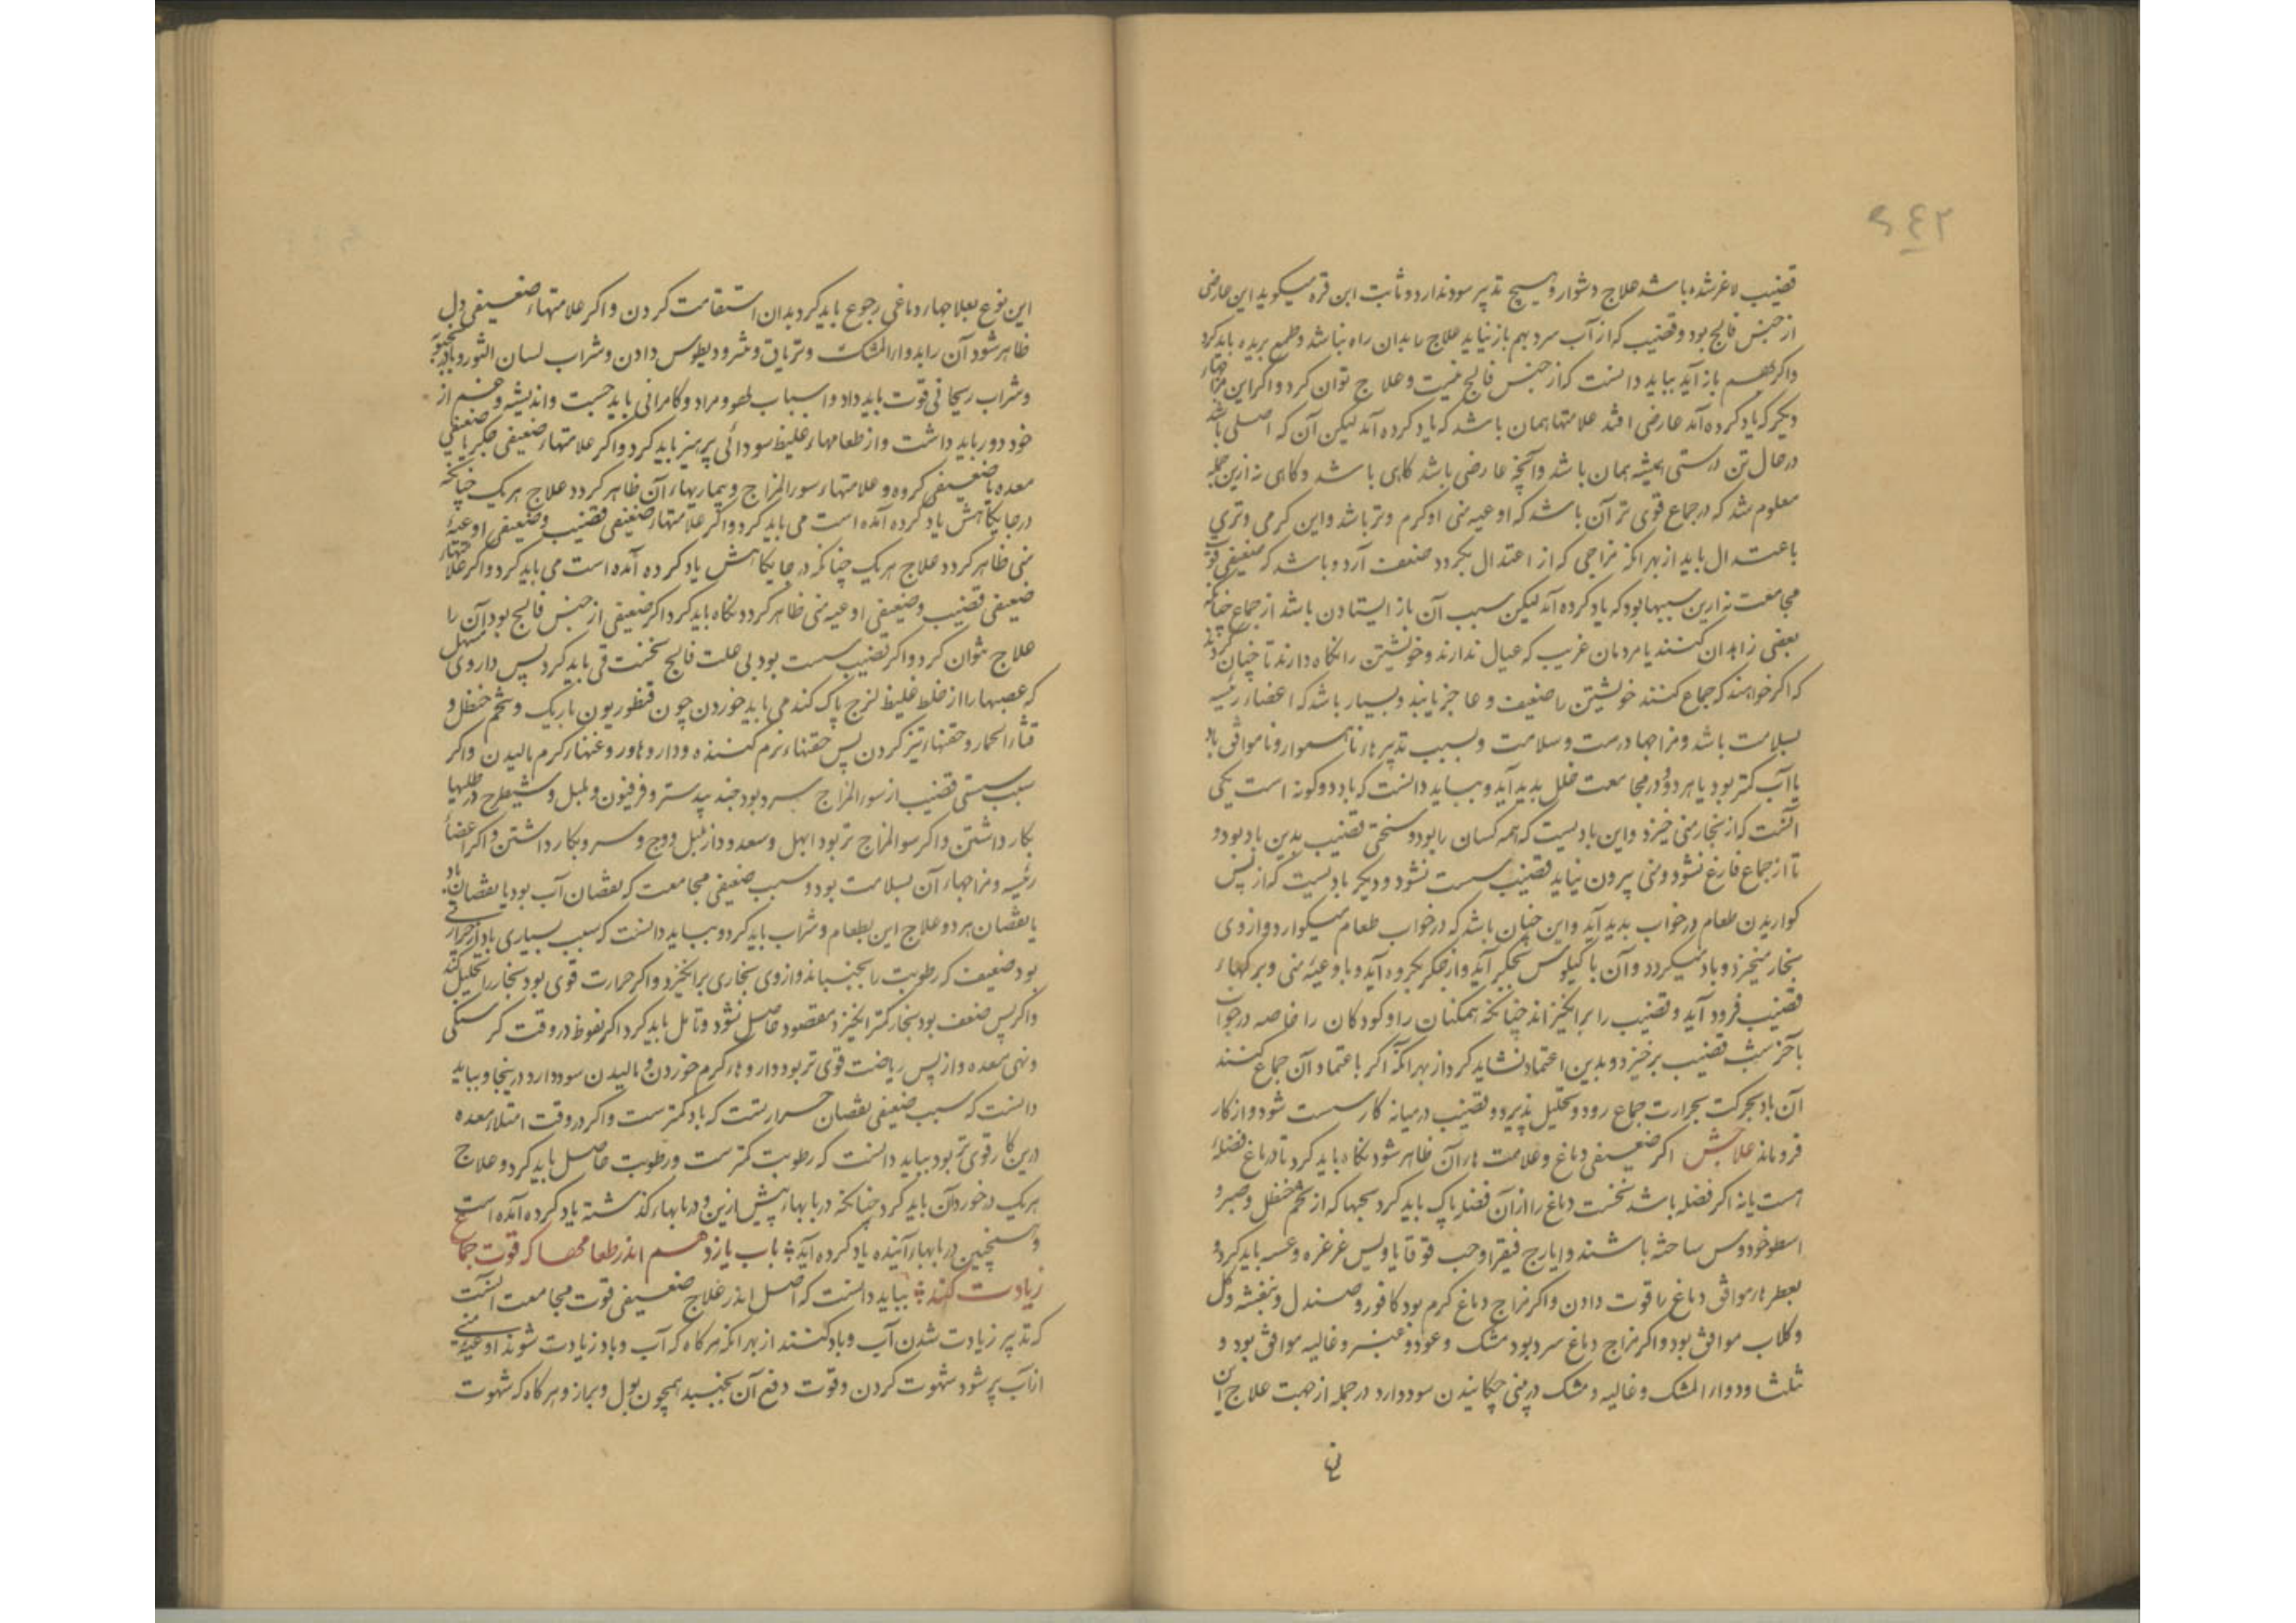 ۶۴۲
قضیب لاغر شده باشد علاج دشوار و هیچ تدبیر سود ندارد و ثابت ابن قره میکوید این عارض
از جنس فالج بود و قضیب که از آب سرد بهم باز نیاید علاج را بدان راه نباشد و طمع بریده باید کرد
واکر بهم باز آید بباید دانست که از جنس فالج نیست و علاج توان کرد واکر این مزاجهاء
دیکر که یاد کرده آمد عارضی افتد علامتها همان باشد که یاد کرده آمد لیکن آن که اصلی باشد
در حال تن درستی همیشه همان باشد وآنچه عارضی باشد کاهی باشد وکاهی نه ازین جمله
معلوم شد که در جماع قوی تر آن باشد که اوعیه منی او کرم وتر باشد واین کرمی وتری
باعتدال باید از بهر انکه مزاجی که از اعتدال بکردد ضعف آرد وباشد که ضعیفی قوت
مجامعت نه ازین سببها بود که یاد کرده آمد لیکن سبب آن باز ایستادن باشد از جماع چنانکه
بعضی زاهدان کنند یا مردمان غریب که عیال ندارند وخویشتن را نکاه دارند تا چنان کردند
که اکر خواهند که جماع کنند خویشتن را ضعیف و عاجز یابند وبسیار باشد که اعضاء رئیسه
بسلامت باشد ومزاجها درست وسلامت وبسبب تدبیرهاء ناهموار وناموافق باد
یا آب کمتر بود یا هر دو ودر مجامعت خلل پدید آید وبباید دانست که باد دو کونه است یکی
آنست که از بخار منی خیزد واین بادیست که همه کسان را بود وسختی قضیب بدین باد بود و
تا از جماع فارغ نشود ومنی بیرون نیاید قضیب سست نشود ودیکر بادیست که از پس
کواریدن طعام در خواب پدید آید واین چنان باشد که در خواب طعام میکوارد وازوی
بخار میخیزد وباد میکردد وآن با کیلوس بجکر آید واز جکر بکروه آید وباوعیه منی وبرکهاء
قضیب فرود آید وقضیب را برانکیزاند چنانکه همکنان را وکودکان را خاصه در خواب
باخر شب قضیب برخیزد وبدین اعتماد نشاید کرد از بهر آنکه اکر باعتماد آن جماع کنند
آن باد بحرکت بحرارت جماع رود وتحلیل پذیرد وقضیب در میانه کار سست شود واز کار
فرو ماند علاجش اکر ضعیفی دماغ وعلامت هاء آن ظاهر شود نکاه باید کرد تا در دماغ فضلهٔ
هست یا نه اکر فضله باشد نخست دماغ را از آن فضله پاک باید کرد بحبها که از شحم حنظل وصبر و
اسطوخودوس ساخته باشند وایارج فیقرا وحب قوقایا وپس غرغره وعسه باید کرد و
بعطرهاء موافق دماغ را قوت دادن واکر مزاج دماغ کرم بود کافور وصندل وبنفشه وکل
وکلاب موافق بود واکر مزاج دماغ سرد بود مشک وعود وعنبر وغالیه موافق بود و
ثلثا ودواء المشک وغالیه ومشک در بینی چکانیدن سود دارد در جمله از جهت علاج این
این نوع بعلاجهاء دماغی رجوع باید کرد بدان استقامت کردن واکر علامتهاء ضعیفی دل
ظاهر شود آن را بدواء المشک وتریاق ومثرودیطوس دادن وشراب لسان الثور وبادرنجبویه
وشراب ریحانی قوت باید داد واسباب لهو ومراد وکامرانی باید جست واندیشه وخشم از
خود دور باید داشت واز طعامهاء غلیظ سودائی پرهیز باید کرد واکر علامتهاء ضعیفی جکر یا ضعیفی
معده یا ضعیفی کروه وعلامتهاء سوء المزاج وبیماریهاء آن ظاهر کردد علاج هریک چنانکه
در جایکاهش یاد کرده آمده است می باید کرد واکر علامتهاء ضعیفی قضیب وضعیفی اوعیهٔ
منی ظاهر کردد علاج هریک چنانکه در جایکاهش یاد کرده آمده است می باید کرد واکر علامتهاء
ضعیفی قضیب وضعیفی اوعیه منی ظاهر کردد نکاه باید کرد اکر ضعیفی از جنس فالج بود آن را
علاج نتوان کرد واکر قضیب سست بود بی علت فالج نخست قی باید کرد پس داروی مسهل
که عصبها را از خلط غلیظ لزج پاک کند می باید خوردن چون قنطوریون باریک وشحم حنظل و
قثاء الحمار وحقنهاء تیز کردن پس حقنهاء نرم کننده وداروهاء ور وغنهاء کرم مالیدن واکر
سبب سستی قضیب از سوء المزاج سرد بود جند بیدستر وفرفیون وبلبل وشیطرج در طلیها
بکار داشتن واکر سوء المزاج تر بود ابهل وسعد ودار بلبل ووج وسرو بکار داشتن واکر اعضاء
رئیسه ومزاجهاء آن بسلامت بود وسبب ضعیفی مجامعت که نقصان آب بود یا نقصان باد
یا نقصان هردو علاج این بطعام وشراب باید کرد وبباید دانست که سبب بسیاری باد از حرارتی
بود ضعیف که رطوبت را بجنباند وازوی بخاری برانکیزد واکر حرارت قوی بود بخار را تحلیل کند
واکر بس ضعیف بود بخار کمتر انکیزد ومقصود حاصل نشود وتامل باید کرد اکر نعوظ در وقت کرسنکی
وتهی معده واز پس ریاضت قوی تر بود داروهاء کرم خوردن ومالیدن سود دارد در اینجا وبباید
دانست که سبب ضعیفی نقصان حرارتست که باد کمترست واکر در وقت امتلاء معده
درین کار قوی تر بود بباید دانست که رطوبت کمترست ورطوبت حاصل باید کرد وعلاج
هریک در خورد آن باید کرد چنانکه در بابهاء پیش ازین ودر بابهاء کذشته یاد کرده آمده است
وهمچنین در بابهاء آینده یاد کرده آید باب یازدهم اندر طعامها که قوت جماع
زیادت کند بباید دانست که اصل اندر علاج ضعیفی قوت مجامعت آنست
که تدبیر زیادت شدن آب وباد کنند از بهر انکه هرکاه که آب وباد زیادت شوند اوعیهٔ منی
از آب پر شود شهوت کردن وقوت دفع آن بجنبد همچون بول وبراز وهرکاه که شهوت